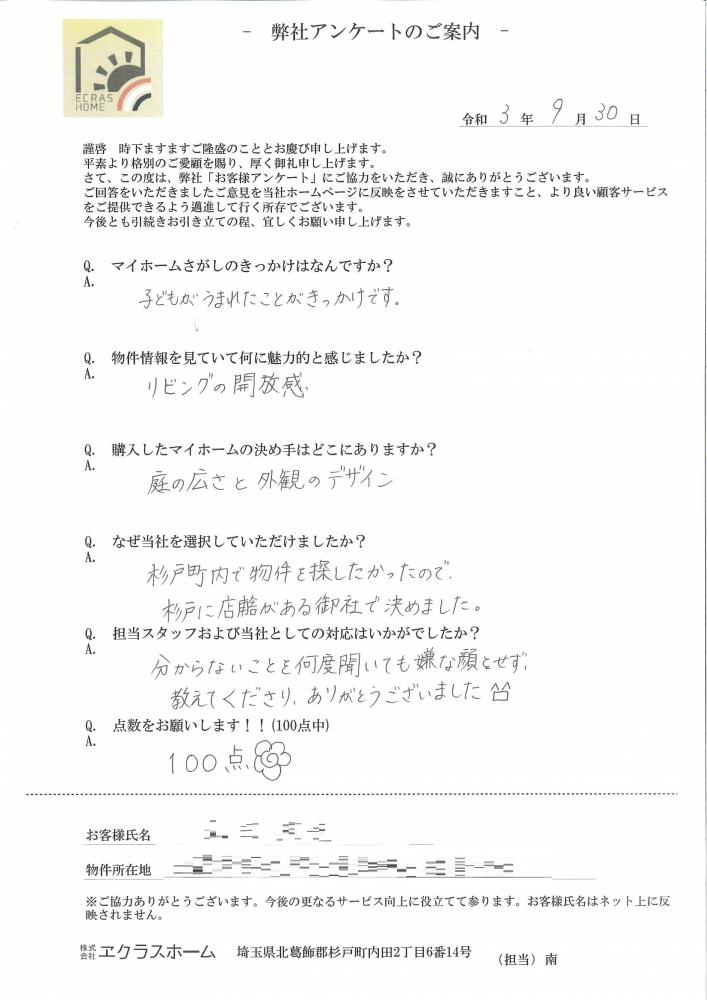 ECRAS
HOME
- 弊社アンケートのご案内 -
令和 3 年 9 月 30 日
謹啓　時下ますますご隆盛のこととお慶び申し上げます。
平素より格別のご愛顧を賜り、厚く御礼申し上げます。
さて、この度は、弊社「お客様アンケート」にご協力をいただき、誠にありがとうございます。
ご回答をいただきましたご意見を当社ホームページに反映をさせていただきますこと、より良い顧客サービス
をご提供できるよう邁進して行く所存でございます。
今後とも引続きお引き立ての程、宜しくお願い申し上げます。
Q. マイホームさがしのきっかけはなんですか？
A.
子どもがうまれたことがきっかけです。
Q. 物件情報を見ていて何に魅力的と感じましたか？
A.
リビングの開放感
Q. 購入したマイホームの決め手はどこにありますか？
A.
庭の広さと外観のデザイン
Q. なぜ当社を選択していただけましたか？
A.
杉戸町内で物件を探したかったので、
杉戸に店舗がある御社で決めました。
Q. 担当スタッフおよび当社としての対応はいかがでしたか？
A.
分からないことを何度聞いても嫌な顔とせず、
教えてくださり、ありがとうございました
Q. 点数をお願いします！！(100点中)
A.
100点
お客様氏名
物件所在地
※ご協力ありがとうございます。今後の更なるサービス向上に役立てて参ります。お客様氏名はネット上に反
映されません。
株式会社 ヱクラスホーム 埼玉県北葛飾郡杉戸町内田2丁目6番14号 （担当）南